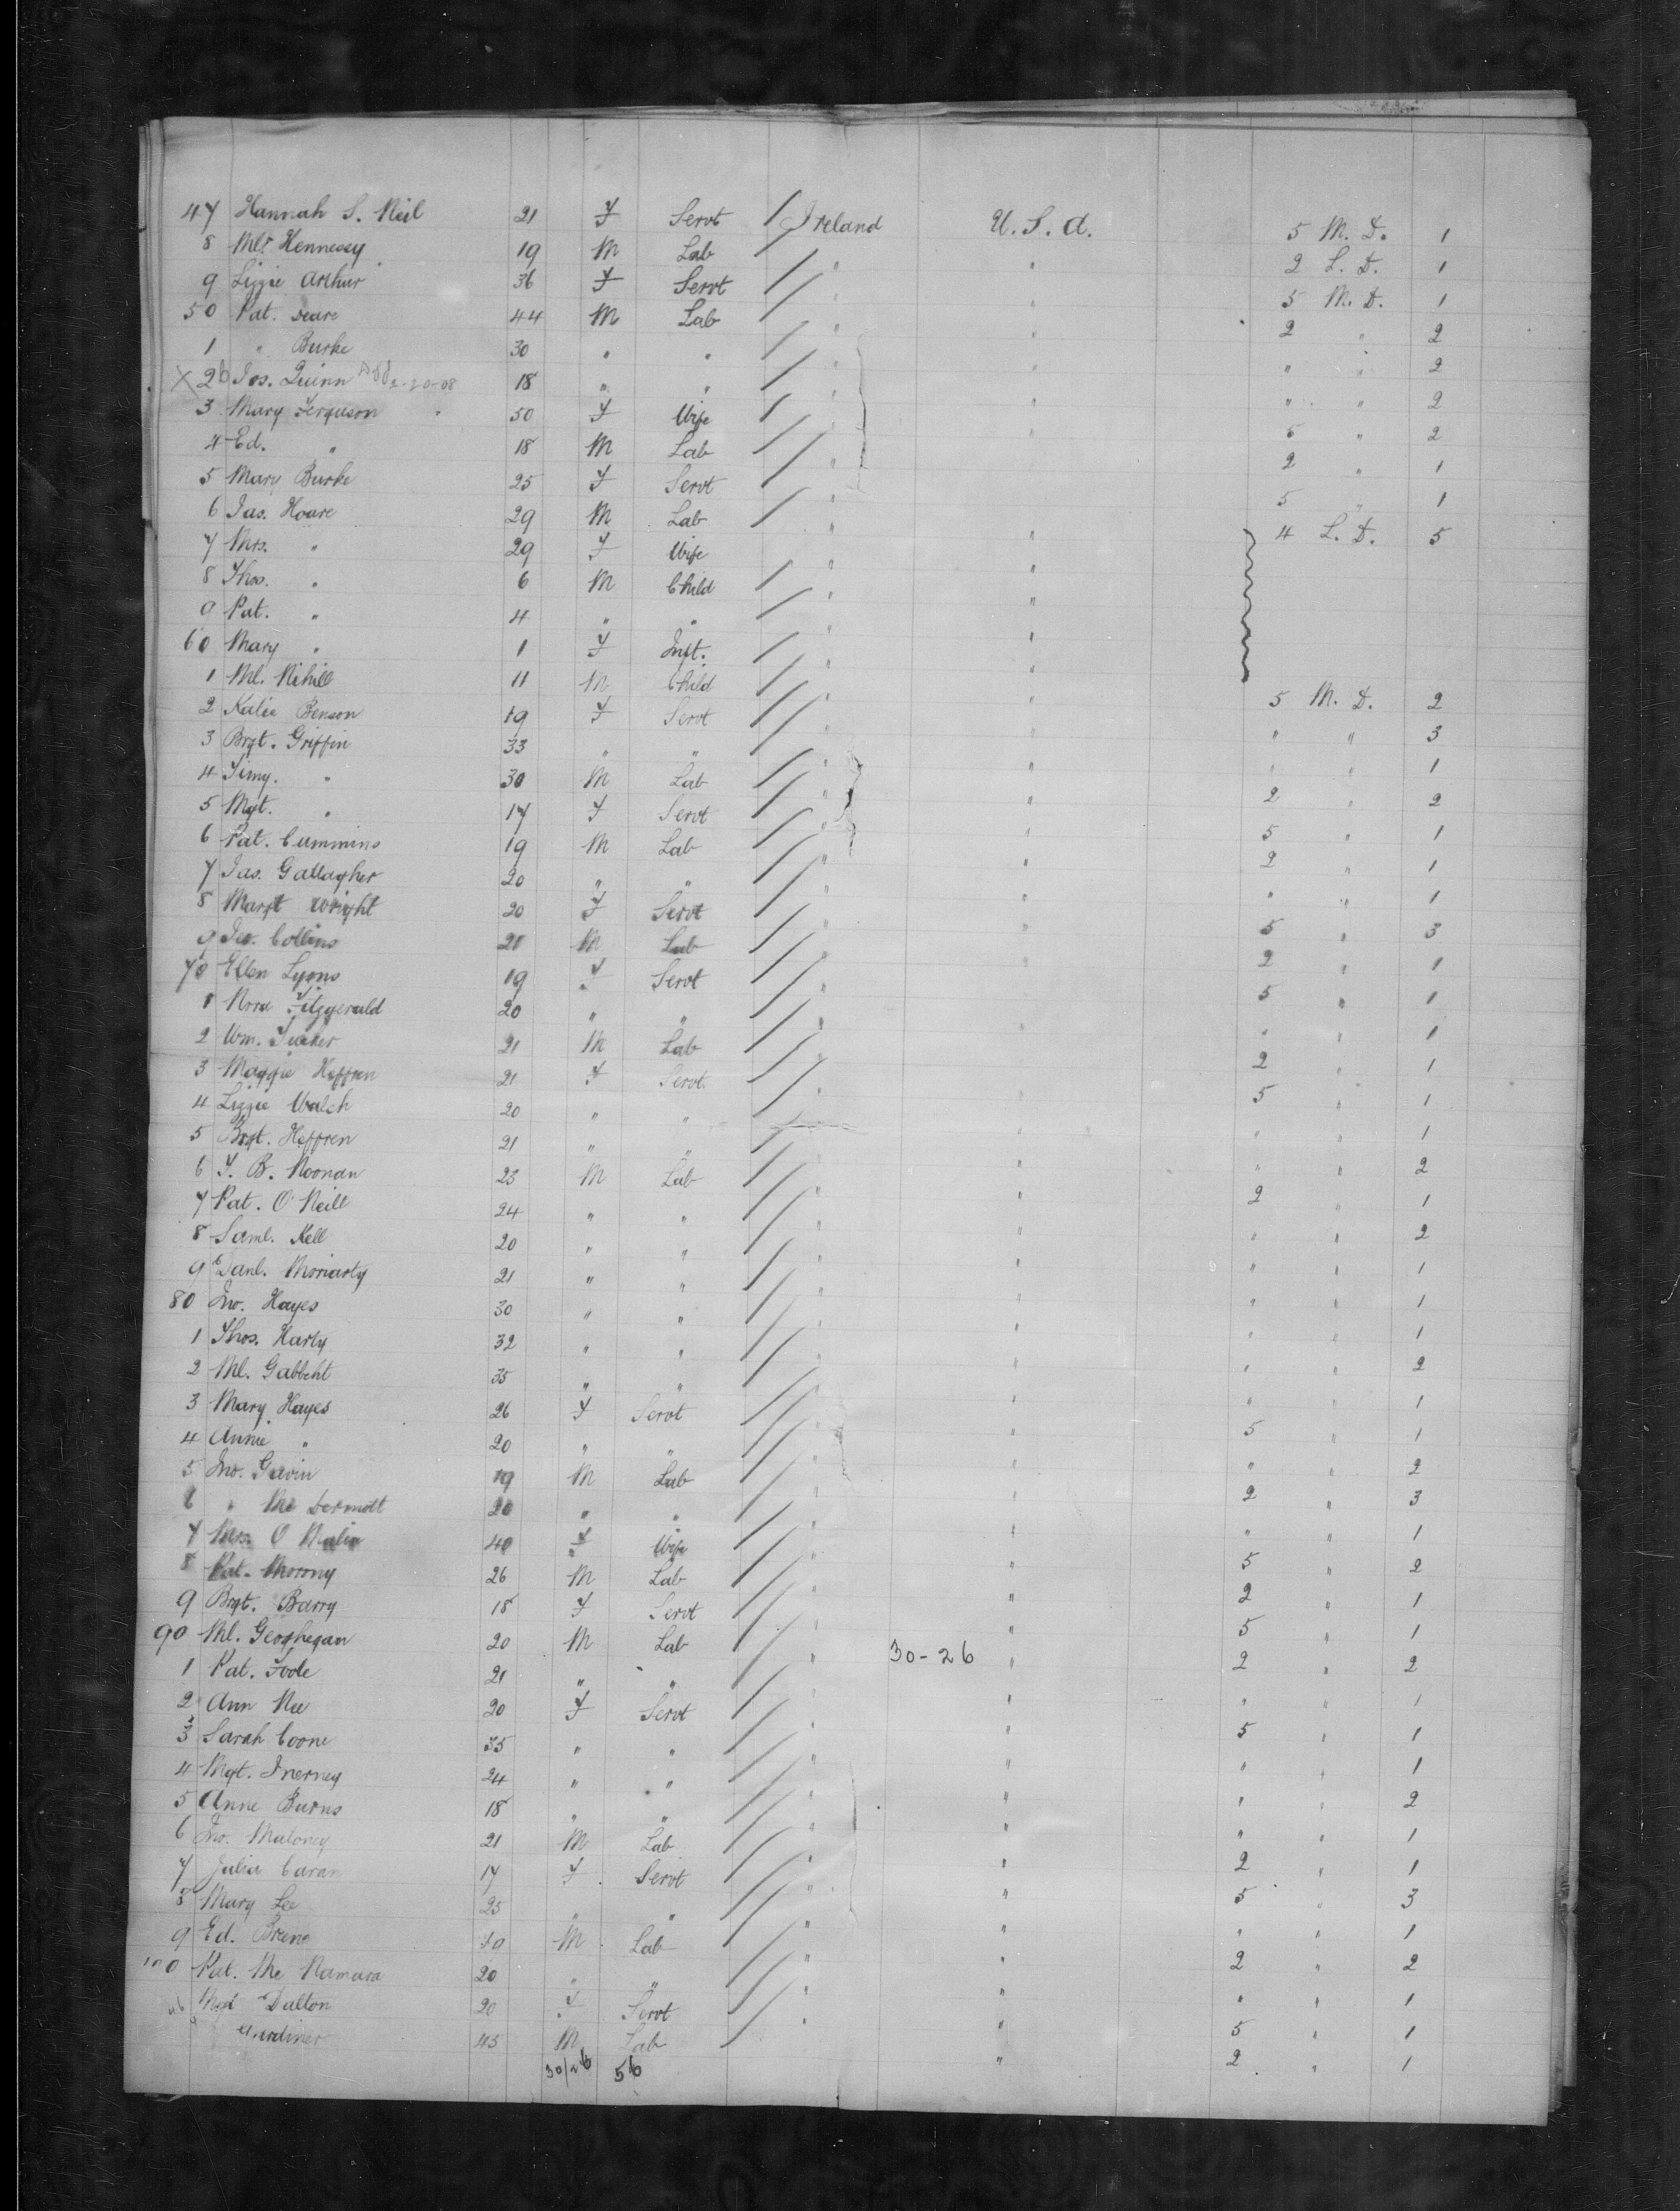 47 Hannah S. Neil 21 F Servt / Ireland U.S.A. 5 M.D. 1
8 Ml. Hennessy 19 M Lab / " " 2 L.D. 1
9 Lizzie Arthur 36 F Servt / " " 5 M.D. 1
50 Pat. Deare 44 M Lab / " " 2 " 2
1 " Burke 30 " " / " " " " 2
X 26 Jos. Quinn 2-20-08 18 " " / " " " " 2
3 Mary Ferguson 50 F Wife / " " 5 " 2
4 Ed. " 18 M Lab / " " 2 " 1
5 Mary Burke 25 F Servt / " " 5 " 1
6 Jas. Hoare 29 M Lab / " " 4 L.D. 5
7 Mrs. " 29 F Wife " "
8 Thos. " 6 M Child / " "
9 Pat. " 4 " " / " "
60 Mary " 1 F Inft. / " "
1 Ml. Nihill 11 M Child / " " 5 M.D. 2
2 Katie Benson 19 F Servt / " " " " 3
3 Brgt. Griffin 33 " " / " " " " 1
4 Timy. " 30 M Lab / " " 2 " 2
5 Mgt. " 17 F Servt / " " 5 " 1
6 Pat. Cummins 19 M Lab / " " 2 " 1
7 Jas. Gallagher 20 " " / " " " " 1
8 Margt Wright 20 F Servt / " " 5 " 3
9 Collins 21 M Lab / " " 2 " 1
70 Ellen Lyons 19 F Servt / " " 5 " 1
1 Nora Fitzgerald 20 " " / " " " " 1
2 Wm. Tucker 21 M Lab / " " 2 " 1
3 Maggie Heffren 21 F Servt. / " " 5 " 1
4 Lizzie Walsh 20 " " / " " " " 1
5 Brgt. Heffren 21 " " / " " " " 2
6 T. B. Noonan 23 M Lab / " " 2 " 1
7 Pat. O'Neill 24 " " / " " " " 2
8 Saml. Kell 20 " " / " " " " 1
9 Danl. Moriarty 21 " " / " " " " 1
80 Jno. Hayes 30 " " / " " " " 1
1 Thos. Harty 32 " " / " " " " 2
2 Ml. Gabbeht 35 " " / " " " " 1
3 Mary Hayes 26 F Servt / " " 5 " 1
4 Annie " 20 " " / " " " " 2
5 Jno. Gavin 19 M Lab / " " 2 " 3
6 " Mc Dermott 20 " " / " " " " 1
7 Mrs. O Malia 40 F Wife / " " 5 " 2
8 Pat. Morony 26 M Lab / " " 2 " 1
9 Brgt. Barry 18 F Servt / " " 5 " 1
90 Ml. Geoghegan 20 M Lab / " 30-26 " 2 " 2
1 Pat. Toole 21 " " / " " " " 1
2 Ann Nee 20 F Servt / " " 5 " 1
3 Sarah Coone 35 " " / " " " " 1
4 Mgt. Inerney 24 " " / " " " " 2
5 Anne Burns 18 " " / " " " " 1
6 Jno. Maloney 21 M Lab / " " 2 " 1
7 Julia Curan 17 F Servt / " " 5 " 3
8 Mary Lee 25 " " / " " " " 1
9 Ed. Breen 40 M Lab / " " 2 " 2
100 Pat. Mc Namara 20 " " / " " " " 1
Mgt Dalton 20 F Servt / " " 5 " 1
Gardiner 45 M Lab / " 2 " 1
30/26 56